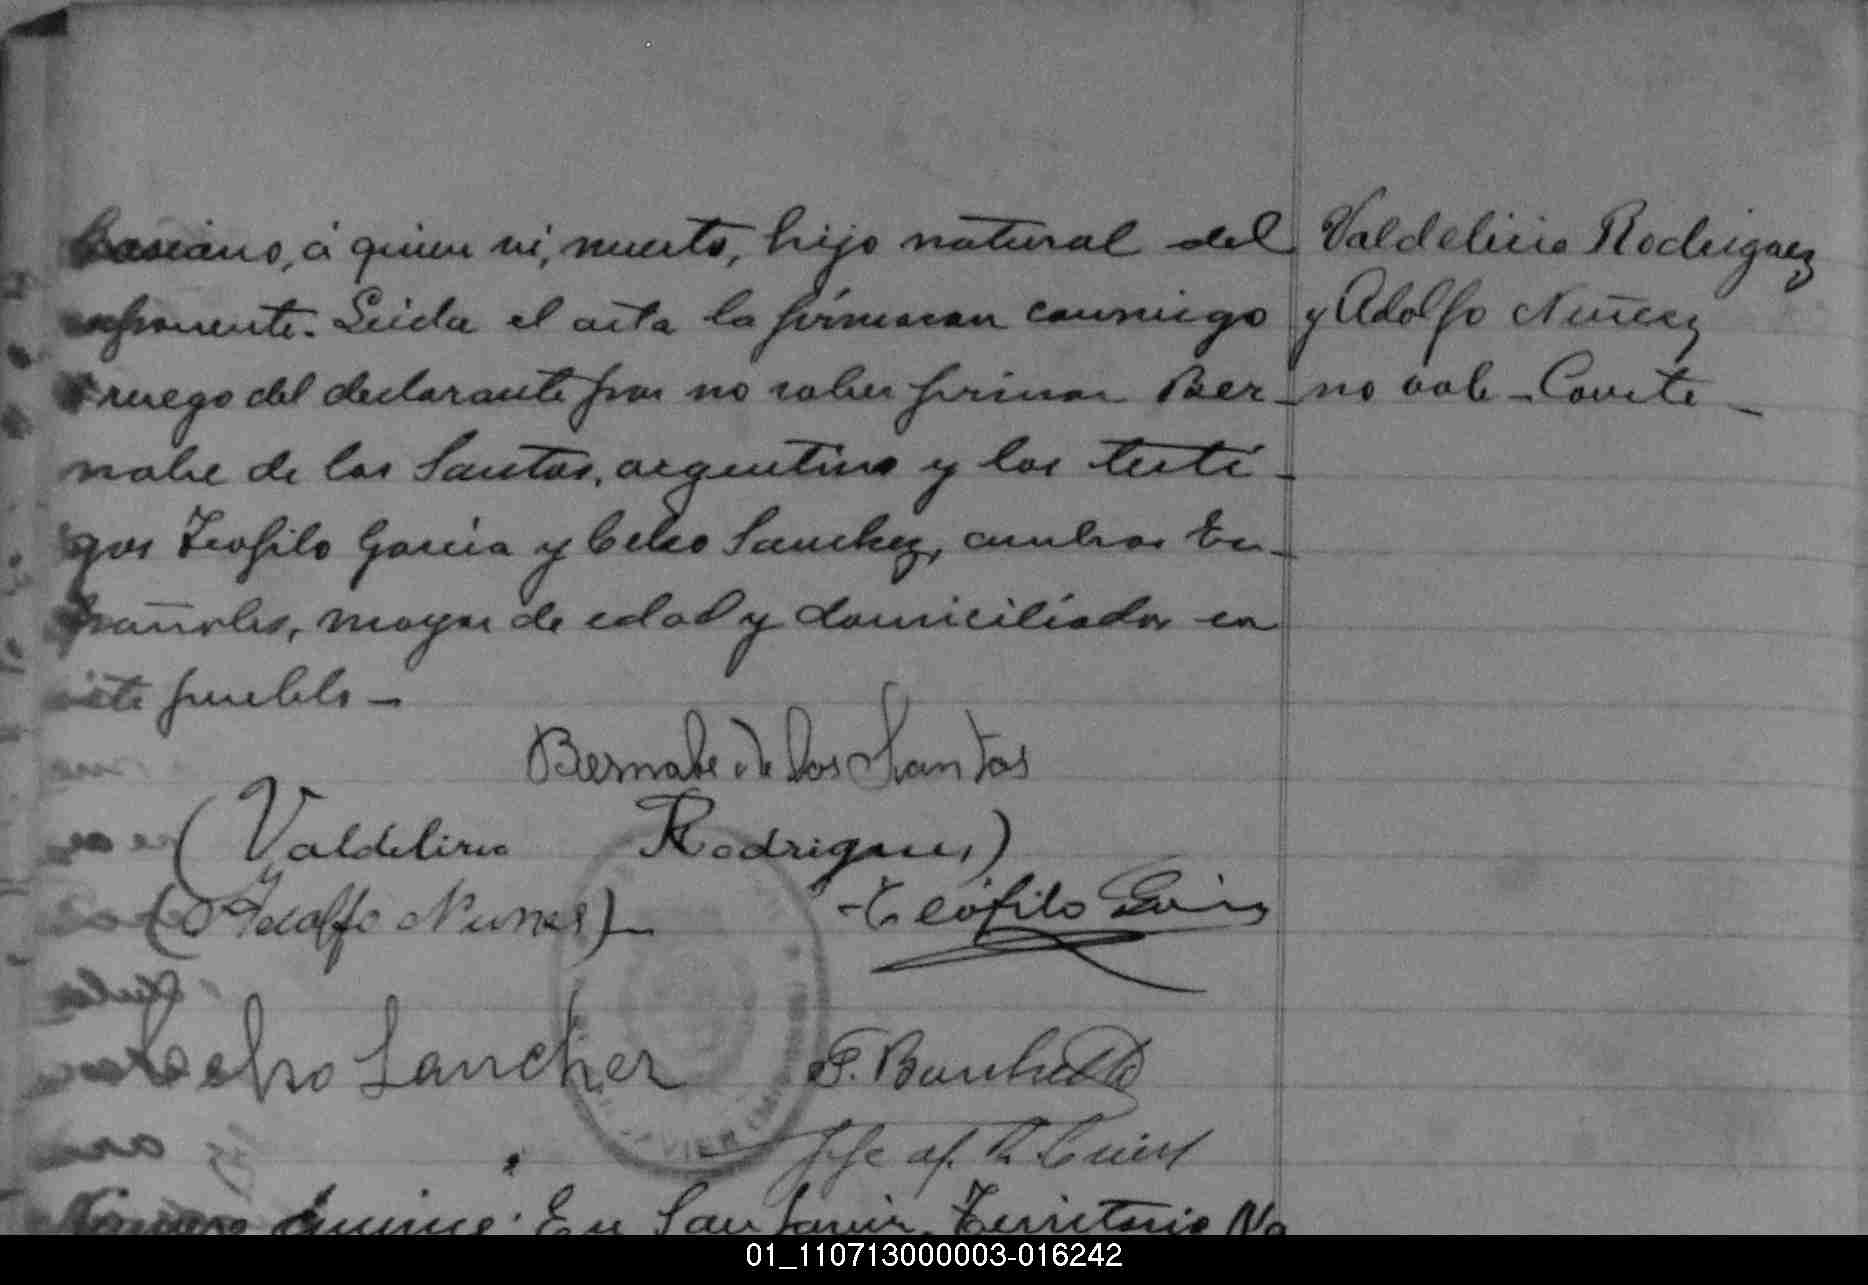 á quien ví, muerto, hijo natural del
exponente. Leida el acta la firmaran conmigo
á ruego del declarante por no saber firmar Ber-
nabe de los Santos, argentino y los testi-
gos Teofilo Garcia y Celso Sanchez, ambos Es-
pañoles, mayor de edad y domiciliados en
este pueblo -
Valdelirio Rodriguez
y Adolfo Nuñez
no vale - Conste -
Bernabe de los Santos
(Valdelirio Rodrigues)
(Adolfo Nunes) -
Teófilo Garcia
Celso Sancher
Jefe of. R. Civil
Número quince: En San Javier, Territorio Na
01_110713000003-016242